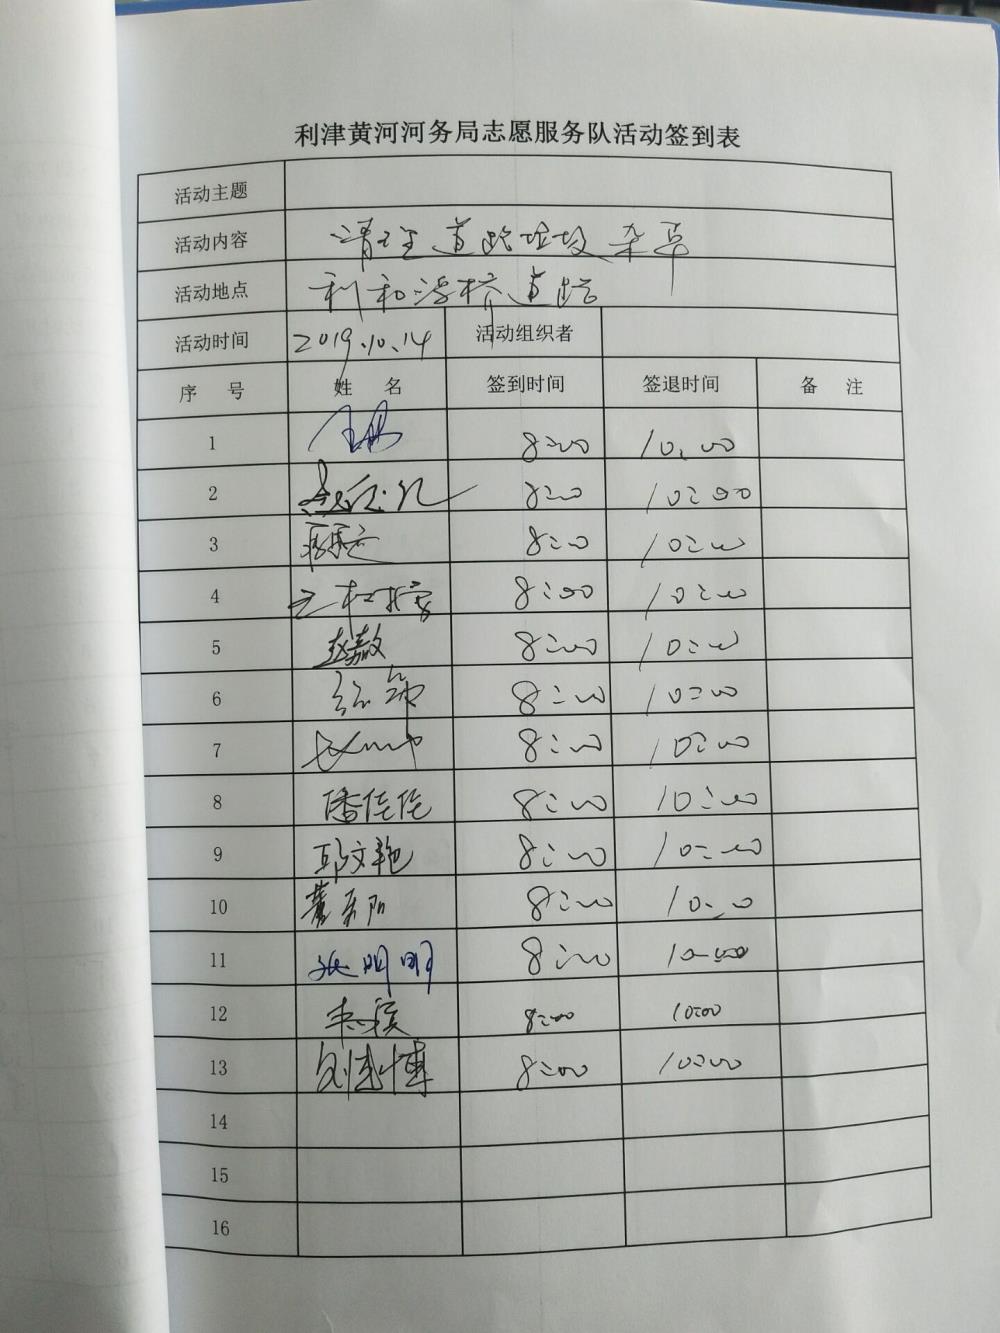 利津黄河河务局志愿服务队活动签到表
活动主题
活动内容 清理道路垃圾杂草
活动地点 利和浮桥道路
活动时间 2019.10.14 活动组织者
序 号 姓 名 签到时间 签退时间 备 注
1 8:00 10:00
2 8:00 10:00
3 8:00 10:00
4 8:00 10:00
5 赵嘉敏 8:00 10:00
6 8:00 10:00
7 8:00 10:00
8 潘佳佳 8:00 10:00
9 邱文艳 8:00 10:00
10 8:00 10:00
11 张明明 8:00 10:00
12 8:00 10:00
13 8:00 10:00
14
15
16